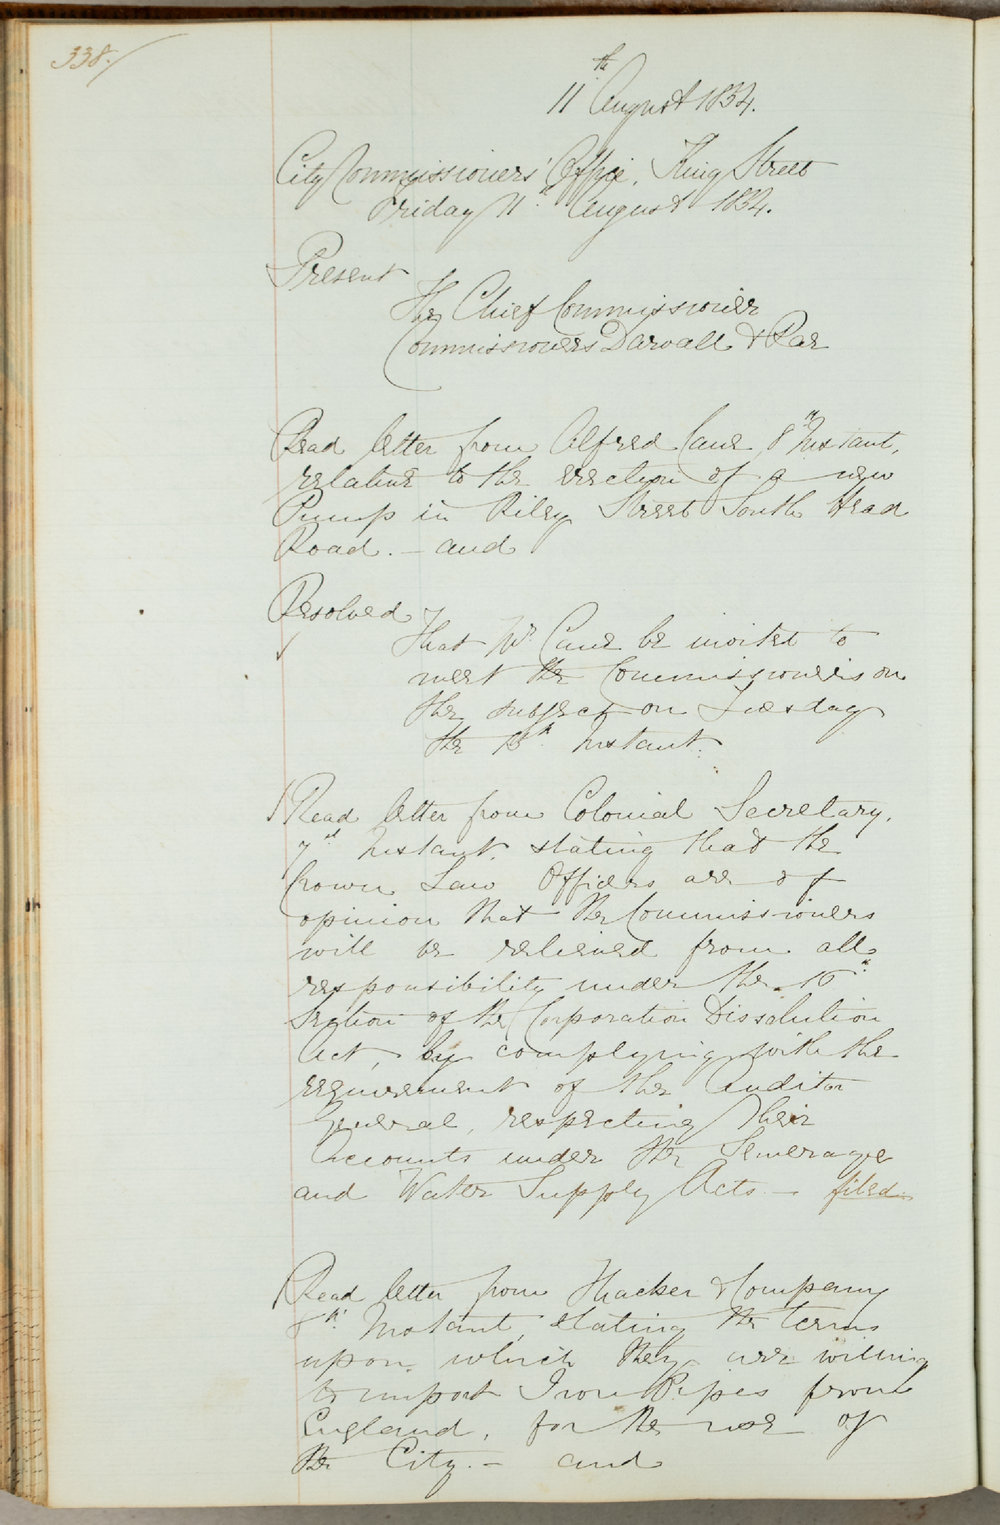 338.
11th August 1854.
City Commissioners' Office, King Street
Friday 11th August 1854.
Present
The Chief Commissioner
Commissioners Darvall & Rae
Read letter from Alfred Cane 8th Instant,
relative to the erection of a new
Pump in Riley Street South Head
Road. — and
Resolved
That Mr Cane be invited to
meet the Commissioners on
the subject on Tuesday
the 15th Instant.
Read letter from Colonial Secretary,
7th Instant, stating that the
Crown Law Officers are of
opinion that the Commissioners
will be relieved from all
responsibility under the 16th
Section of the Corporation Dissolution
Act, by complying with the
requirement of the Auditor
General, respecting their
Accounts under the Sewerage
and Water Supply Acts — filed
Read letter from Thacker & Company
8th Instant, stating the terms
upon which they are willing
to import Iron Pipes from
England, for the use of
the City. — and